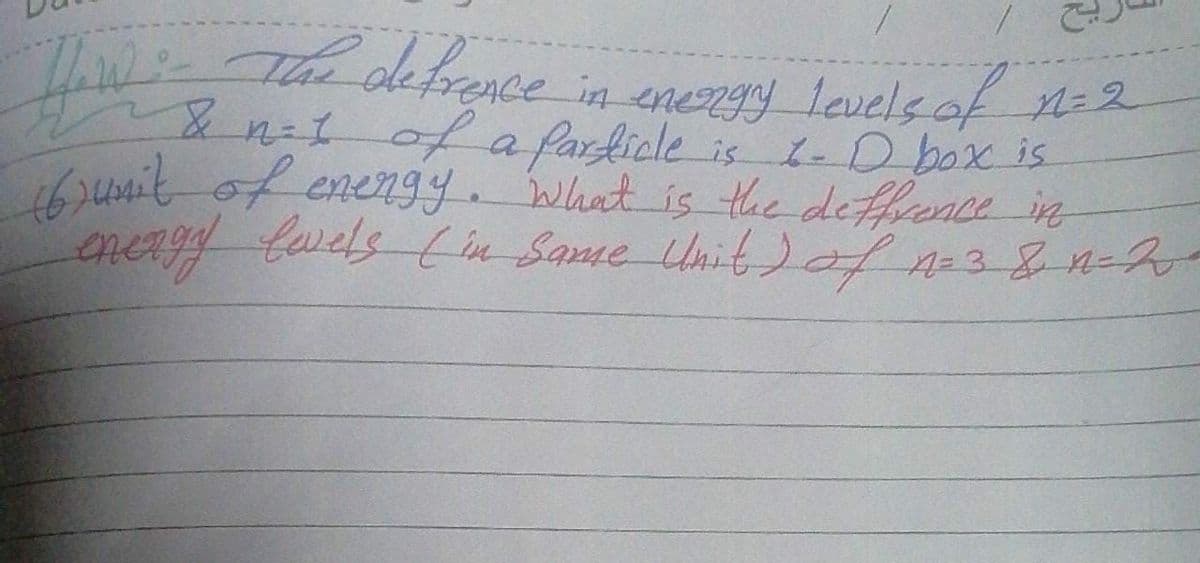 / / التاريخ
H.W:- The defrence in energy levels of n=2
& n=1 of a Particle is 1-D box is
(6) unit of energy. What is the deffrence in
energy levels (in Same Unit) of n=3 & n=2